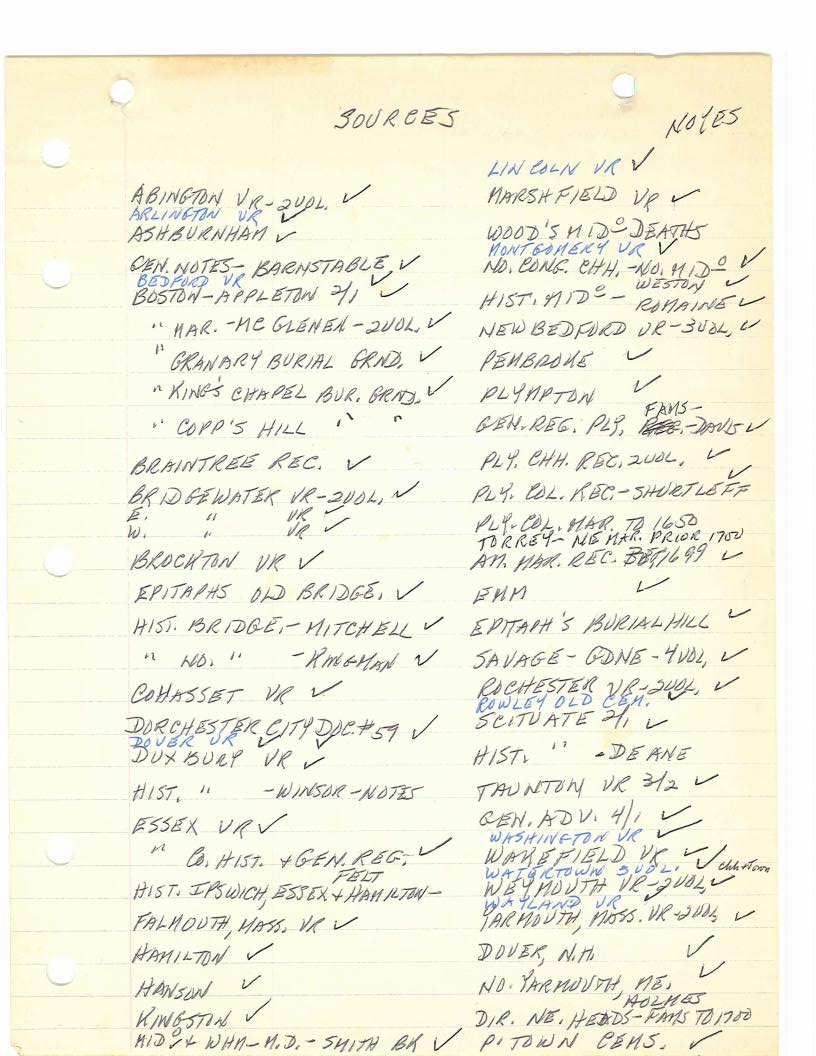 SOURCES
NOTES
ABINGTON VR-2VOL. ✓
ARLINGTON VR ✓
ASHBURNHAM ✓
GEN. NOTES- BARNSTABLE ✓
BEDFORD VR ✓
BOSTON-APPLETON 2/1 ✓
" MAR.-MC GLENEN-2VOL. ✓
" GRANARY BURIAL GRND. ✓
" KING'S CHAPEL BUR. GRND. ✓
" COPP'S HILL " "
BRAINTREE REC. ✓
BRIDGEWATER VR-2VOL. ✓
E. " VR ✓
W. " VR ✓
BROCKTON VR ✓
EPITAPHS OLD BRIDGE. ✓
HIST. BRIDGE.-MITCHELL ✓
" NO. " -KINGMAN ✓
COHASSET VR ✓
DORCHESTER CITY DOC.#59 ✓
DOVER VR ✓ ✓
DUXBURY VR ✓
HIST. " -WINSOR-NOTES
ESSEX VR ✓
" CO. HIST. + GEN. REG. ✓
FELT
HIST. IPSWICH, ESSEX + HAMILTON-
FALMOUTH, MASS. VR ✓
HAMILTON ✓
HANSON ✓
KINGSTON ✓
MIDº + WHM-M.D.-SMITH BK ✓
LINCOLN VR ✓
MARSHFIELD VR ✓
WOOD'S MIDº DEATHS
MONTGOMERY VR ✓
NO. CONG. CHH.-NO. MIDº ✓
WESTON
HIST. MIDº - ROMAINE ✓
NEW BEDFORD VR-3VOL. ✓
PEMBROKE ✓
PLYMPTON ✓
FAMS-
GEN. REG. PLY. REG.-DAVIS ✓
PLY. CHH. REC. 2VOL. ✓
PLY. COL. REC.-SHURTLEFF ✓
PLY. COL. MAR. TO 1650
TORREY- NE MAR. PRIOR 1700
AM. MAR. REC. BEF 1699 ✓
EMM ✓
EPITAPH'S BURIAL HILL ✓
SAVAGE-GDNE-4VOL. ✓
ROCHESTER VR-2VOL. ✓
ROWLEY OLD CEM. ✓
SCITUATE 2/1 ✓
HIST. " -DEANE
TAUNTON VR 3/2 ✓
GEN. ADV. 4/1 ✓
WASHINGTON VR ✓
WAKEFIELD VR ✓
WATERTOWN 3VOL. ✓ chh+Town
WEYMOUTH VR-2VOL ✓
WAYLAND VR ✓
YARMOUTH, MASS. VR-2VOL ✓
DOVER, N.H. ✓
NO. YARMOUTH, ME. ✓
HOLMES
DIR. NE. HEADS-FAMS TO 1700
P'TOWN CEMS. ✓